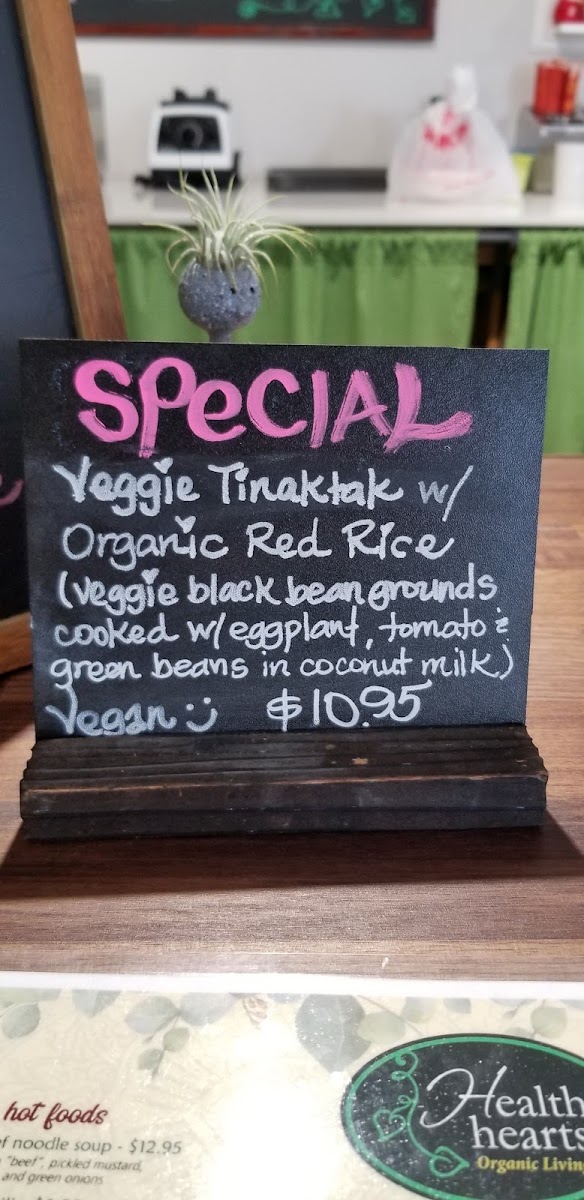 SPeCIAL
Veggie Tinaktak w/
Organic Red Rice
(veggie black bean grounds
cooked w/ eggplant, tomato &
green beans in coconut milk)
Vegan :) $10.95
hot foods
noodle soup - $12.95
"beef", pickled mustard,
and green onions
Health
hearts
Organic Livin